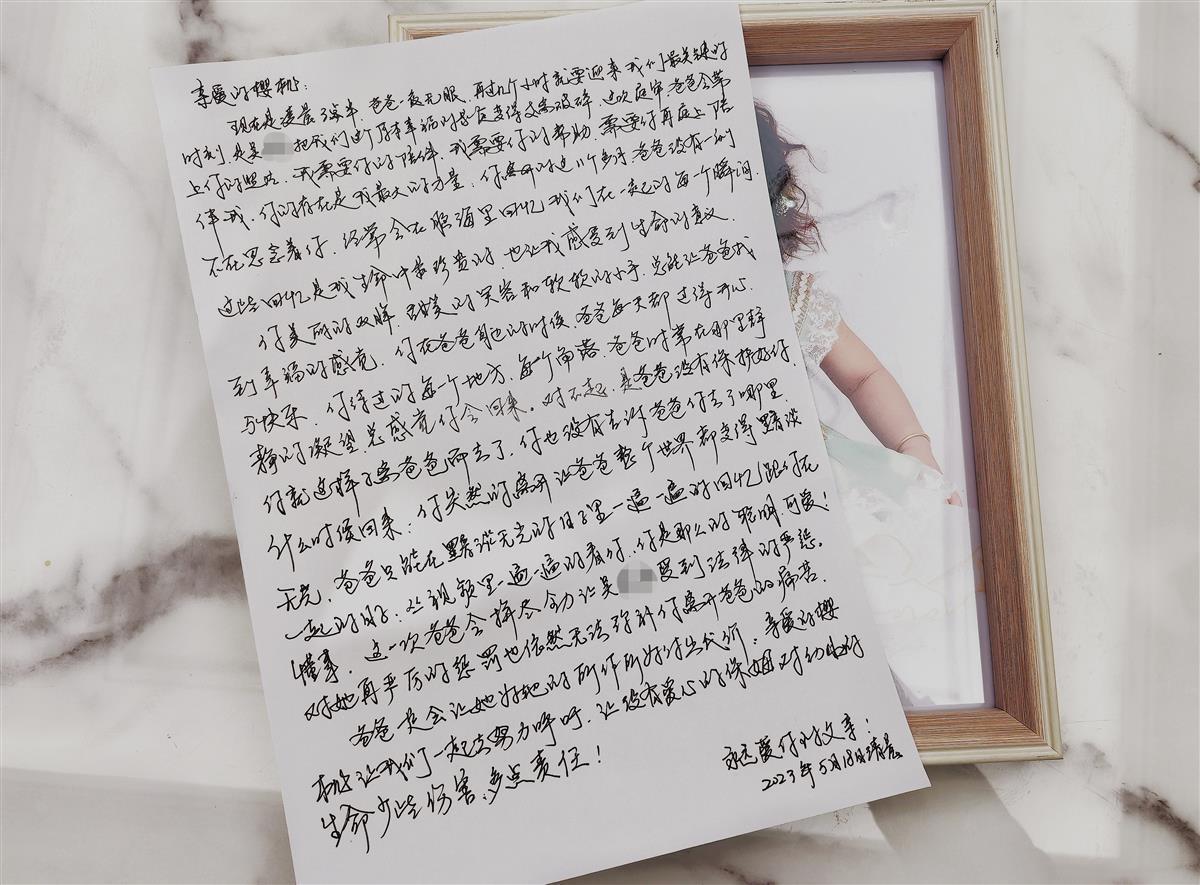 亲爱的樱桃:
现在是凌晨3点半,爸爸一夜无眠,再过几个小时就要迎来我们最关键的
时刻,是吴 把我们这个原本幸福的家庭变得支离破碎,这次庭审,爸爸会带
上你的照片,我需要你的陪伴,我需要你的帮助,需要你再庭上陪
伴我,你的存在是我最大的力量,你离开的这 个多月爸爸没有一刻
不在思念着你,经常会在脑海里回忆我们在一起的每一个瞬间.
这些回忆是我生命中最珍贵的,也让我感受到生命的意义.
你美丽的双眸,甜美的笑容和软软的小手,总能让爸爸找
到幸福的感觉,你在爸爸身边的时候,爸爸每天都过得开心
与快乐,你待过的每一个地方,每个角落,爸爸时常在那里静
静的凝望总感觉你会回来,对不起,是爸爸没有保护好你,
你就这样了离爸爸而去了,你也没有告诉爸爸你去了哪里,
什么时候回来,你突然的离开让爸爸整个世界都变得黯淡
无光,爸爸只能在黯淡无光的日子里一遍一遍的回忆跟你在
一起的日子,从视频里一遍一遍的看你,你是那么的聪明,可爱!
懂事,这一次爸爸会拼尽全力让吴 受到法律的严惩,
对她再严厉的惩罚也依然无法弥补你离开爸爸的痛苦.
爸爸是会让她为她的所作所为付出代价,亲爱的樱
桃让我们一起去努力呼吁,让没有爱心的保姆对幼小的
生命少些伤害,多点责任!
永远爱你的父亲!
2023年5月18日清晨